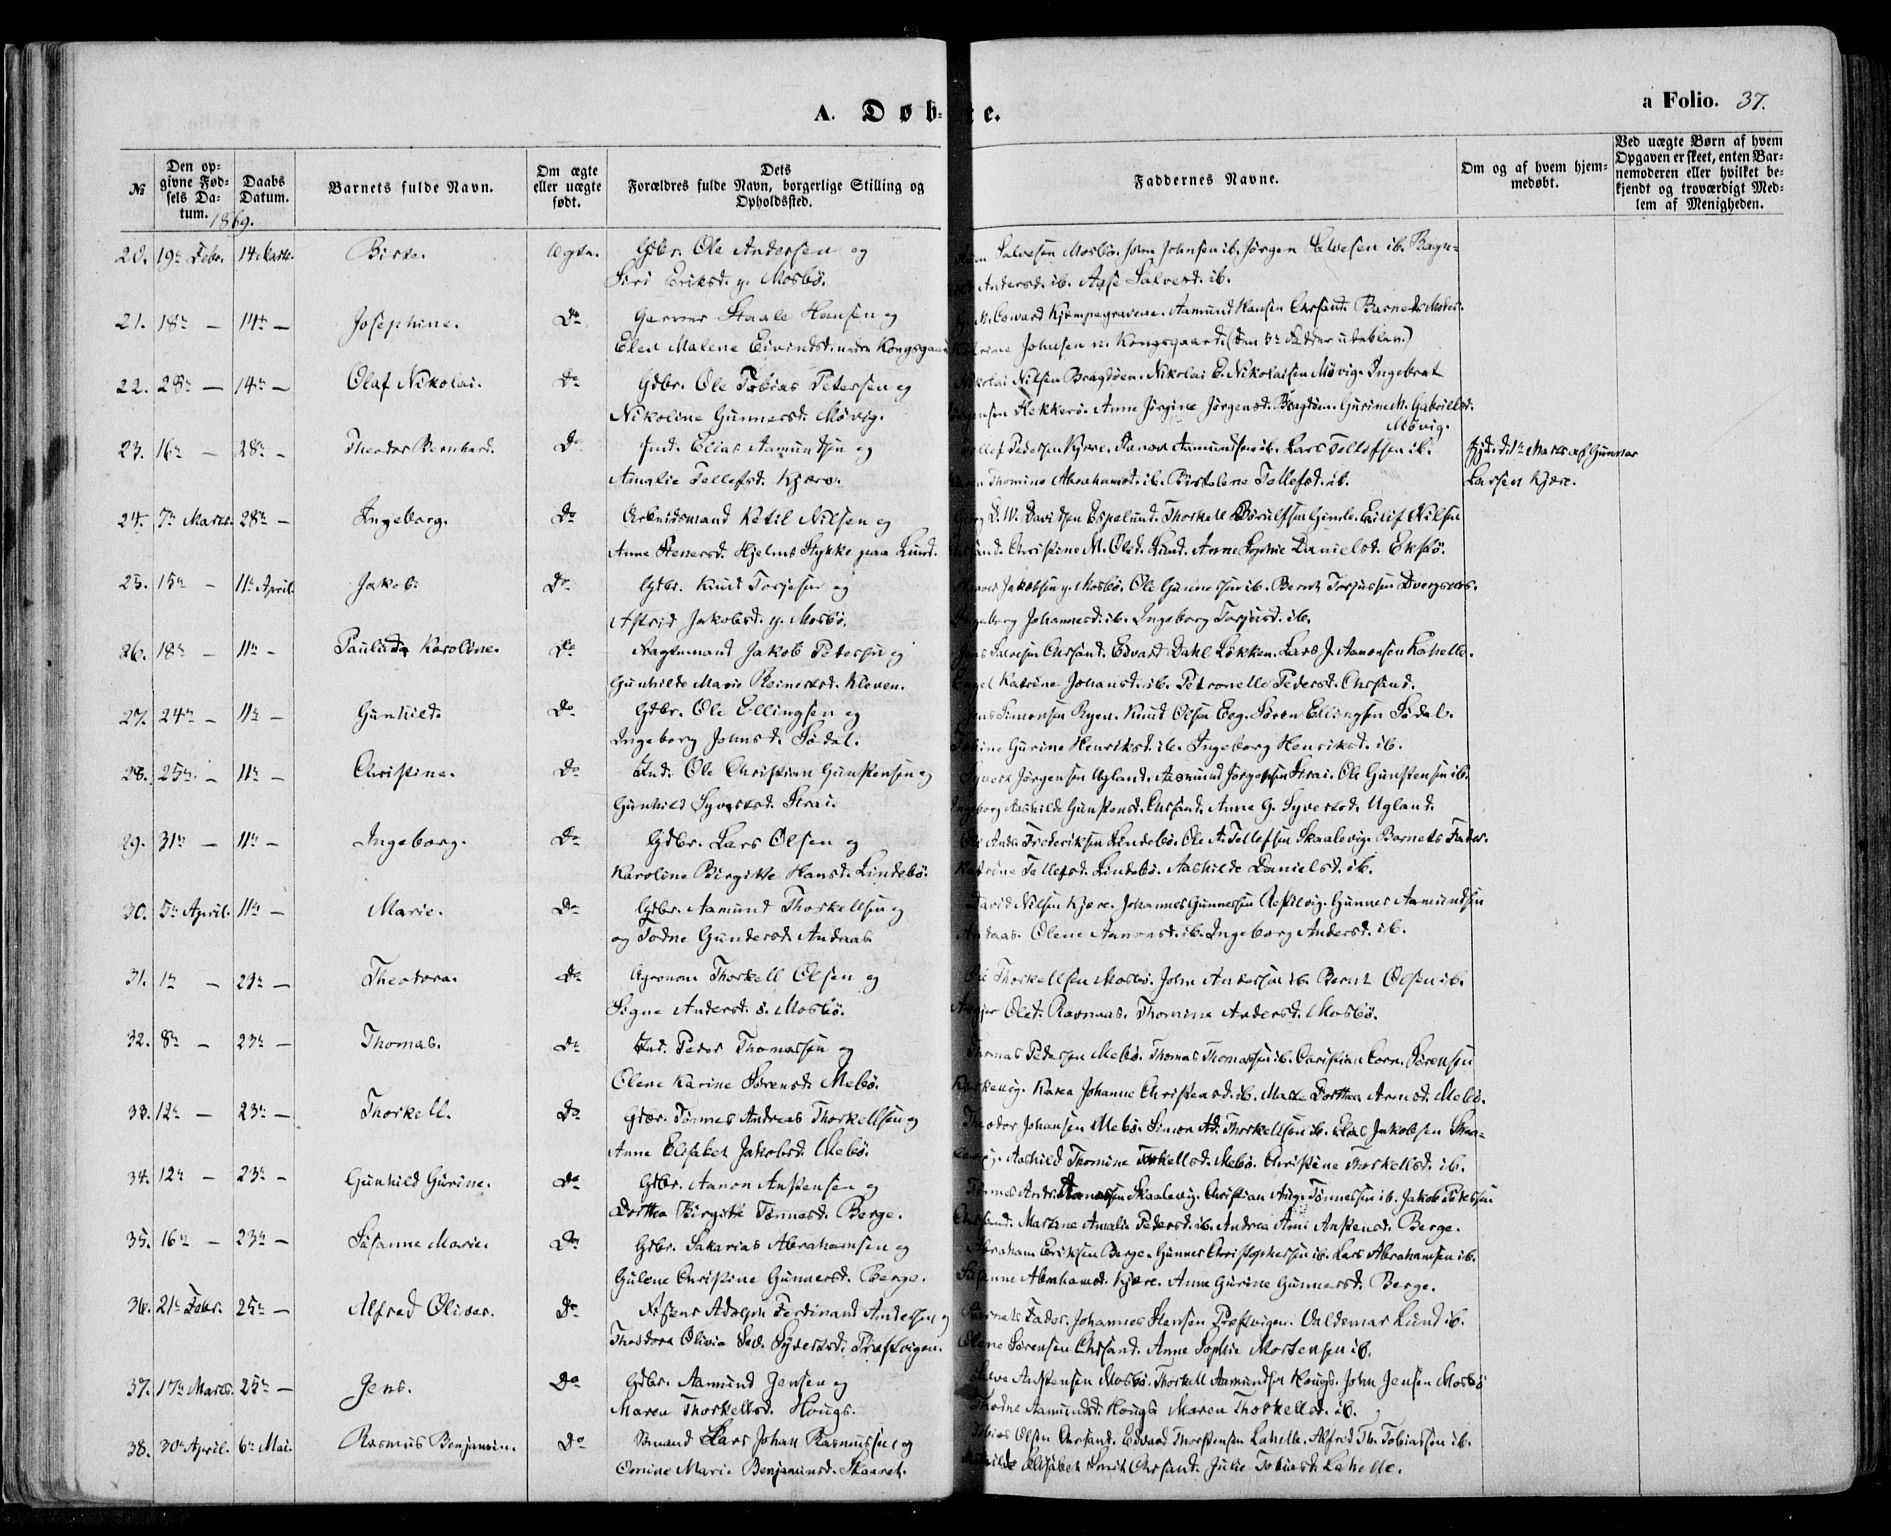 A. Døb- e.
a Folio. 37.
№
Den opgivne Fødsels Datum.
Daabs Datum.
Barnets fulde Navn.
Om ægte eller uægte født.
Dets Forældres fulde Navn, borgerlige Stilling og Opholdssted.
Faddernes Navne.
Om og af hvem hjemmedøbt.
Ved uægte Børn af hvem Opgaven er skeet, enten Barnemoderen eller hvilket bekjendt og troværdigt Medlem af Menigheden.
1869.
20. 19de Febr. 14 Marts. Birte. Ægte. Gdbr. Ole Andersen og
Siri Eriksd. y. Mosbø.
Salvesen Mosbø. John Johnsen ib. Jørgen Salvesen ib. Ragn-
Andersd. ib. Aase Salvesd. ib.
21. 18de — 14de — Josephine. Do Garver Staale Hansen og
Elen Malene Eivindsd. under Kongsgaard
Edward Kjempegravene. Aamund Hansen Chrsand. Barnets Moder.
Johnsen n. Kongsgaard. (den 5te Fadder udeblev.)
22. 28de — 14de — Olaf Nikolai. Do Gdbr. Ole Tobias Petersen og
Nikoline Gunnersd. Møvig.
Nikolai Nilsen Bragdøen. Nikolai E. Nikolaisen Møvig. Ingebret
Jørgensen Flekkerø. Anne Jørgine Jørgensd. Bragdøen. Gurine M. Gabrielsd.
Møvig.
23. 16de — 28de — Theodor Bernhard. Do Ind. Elias Aamundsen og
Amalie Tellefsd. Kjære.
Tellef Pedersen Kjære. Aanon Aamundsen ib. Lars Tellefsen ib.
Thomine Abrahamsd. ib. Birtelene Tellefsd. ib.
Hjd. d. 1te Marts af Gunnar
Larsen Kjære.
24. 7de Marts. 28de — Ingeborg. Do Arbeidsmand Ketil Nilsen og
Anne Stenersd. Hjelms Stykke paa Lund.
Georg D. W. Davidsen Espelund. Thorkell Børulfsen Gimle. Eilif Nilsen
Chrsand. Christine M. Olsd. Lund. Anne Sophie Danielsd. Eksbø.
25. 15de — 11te April. Jakob. Do Gdbr. Knud Torjesen og
Astrid Jakobsd. y. Mosbø.
Jakobsen y. Mosbø. Ole Gunnersen ib. Bernt Torjussen Dvergsnes.
Ingeborg Johannesd. ib. Ingeborg Torjusd. ib.
26. 18de — 11te — Paulude Karoline. Do Fragtemand Jakob Petersen og
Gunhilde Marie Reinertsd. Kleven.
Jens Salvesen Chrsand. Edvard Dahl Løkken. Lars J. Aanonsen Lahelle.
Engel Katrine Johansd. ib. Petronelle Pedersd. Chrsand.
27. 24de — 11te — Gunhild. Do Gdbr. Ole Ellingsen og
Ingeborg Johnsd. Sødal.
Jens Simonsen Ryen. Knud Olsen Eeg. Søren Ellingsen Sødal.
Tobine Gurine Henriksd. ib. Ingeborg Henriksd. ib.
28. 25de — 11te — Christine. Do Ind. Ole Christian Gunstensen og
Gunhild Syvertsd. Strai.
Syvert Jørgensen Ugland. Aasmund Jørgensen Strai. Ole Gunstensen ib.
Ingeborg Aashilde Gunstensd. Chrsand. Anne G. Syvertsd. Ugland.
29. 31te — 11te — Ingeborg. Do Gdbr. Lars Olsen og
Karoline Birgitte Hansd. Lindebø.
Ole Andr. Frederiksen Lindebø. Ole A. Tellefsen Skaalevig. Barnets Fader.
Katrine Tellefsd. Lindebø. Aashilde Danielsd. ib.
30. 5te April. 11te — Marie. Do Gdbr. Aamund Thorkellsen og
og Todne Gundersd. Andaas.
David Nilsen Kjære. Johannes Gunnersen Restelvig. Gunner Aamundsen
Andaas. Olene Aanonsd. ib. Ingeborg Andersd. ib.
31. 1te — 23de — Theodora. Do Agronom Thorkell Olsen og
Signe Andersd. s. Mosbø.
Ole Thorkellsen Mosbø. John Andersen ib. Bernt Olsen ib.
Olsd. Ravnaas. Thomine Andersd. Mosbø.
32. 8de — 23de — Thomas. Do Ind. Peder Thomassen og
Olene Karine Sørensd. Mebø.
Thomas Pedersen Mebø. Thomas Thomassen ib. Christian Corn. Sørensen
Karen Johanne Christensd. ib. Marte Dorthea Arnesd. Mebø.
33. 12te — 23de — Thorkell. Do Gdbr. Tønnes Andreas Thorkellsen og
Anne Elisabet Jakobsd. Mebø.
Theodor Johansen Mebø. Simon Ad. Thorkellsen ib. Elias Jakobsen Skaa-
levig. Aashild Thomine Torkellsd. Mebø. Christine Thorkellsd. ib.
34. 12te — 23de — Gunhild Gurine. Do Gdbr. Aanon Anstensen og
Dorthea Birgitte Tønnesd. Berge.
Tønnes Andr. Tønnessen Skaalevig. Christian Aug. Tønnessen ib. Jakob Pedersen
Chrsand. Martine Amalie Pedersd. ib. Andrea Ami Anstensd. Berge.
35. 16de — 23de — Susanne Marie. Do Gdbr. Sakarias Abrahamsen og
Gulene Christine Gunnersd. Berge.
Abraham Eriksen Berge. Gunner Christophersen ib. Lars Abrahamsen ib.
Susanne Abrahamsd. Kjære. Anne Gurine Gunnersd. Berge.
36. 21de Febr. 25de — Alfred Oliver. Do Adolph Ferdinand Andersen og
Theodora Olivia Sev. Syvertsd. Præstvigen.
Barnets Fader. Johannes Stensen Præstvigen. Valdemar Lund ib.
Olene Sørensen Chrsand. Anne Sophie Mortensen ib.
37. 17de Marts. 25de — Jens. Do Gdbr. Aamund Jensen og
Maren Thorkellsd. Hougs.
Salve Anstensen Mosbø. Thorkell Aamundsen Hougs. John Jensen Mosbø
Thodne Aamundsd. Hougs. Maren Thorkellsd. ib.
38. 30te April. 6te Mai. Rasmus Benjamin. Do Sømand Lars Johan Rasmussen og
Omine Marie Benjaminsd. Skaaret.
Tobias Olsen Chrsand. Edvard Thorstensen Lahelle. Alfred Th. Tobiassen ib.
Mathilde Elisabet Smit Chrsand. Julie Tobiasd. Lahelle.